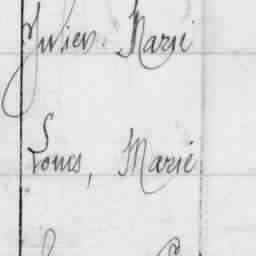 Julien. Marie
Louis, Marie